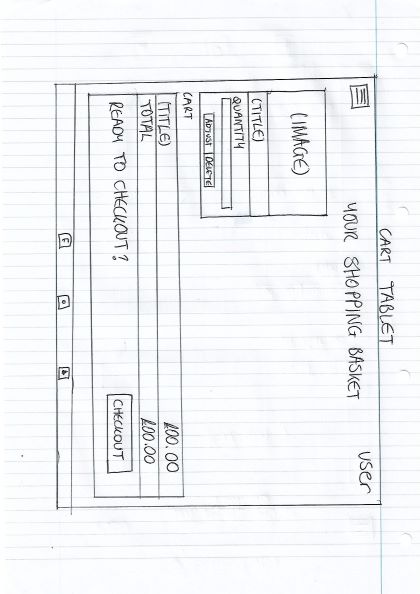 CART TABLET
YOUR SHOPPING BASKET
user
(IMAGE)
(TITLE)
QUANTITY
ADJUST DELETE
CART
(TITLE) £00.00
TOTAL £00.00
READY TO CHECKOUT?
CHECKOUT